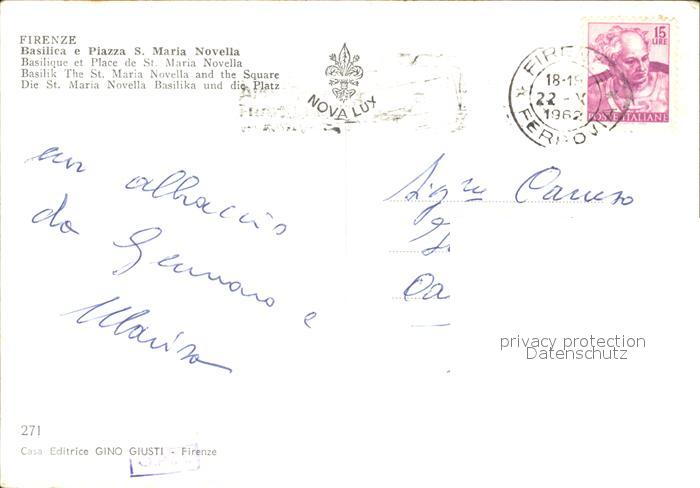 FIRENZE
Basilica e Piazza S. Maria Novella
Basilique et Place de St. Maria Novella
Basilik The St. Maria Novella and the Square
Die St. Maria Novella Basilika und die Platz
NOVA LUX
15
LIRE
POSTE ITALIANE
18-19
22-
1962
FERROVIA
un abbraccio
da Gennaro e
Marisa
Caruso
privacy protection
Datenschutz
271
Casa Editrice GINO GIUSTI - Firenze